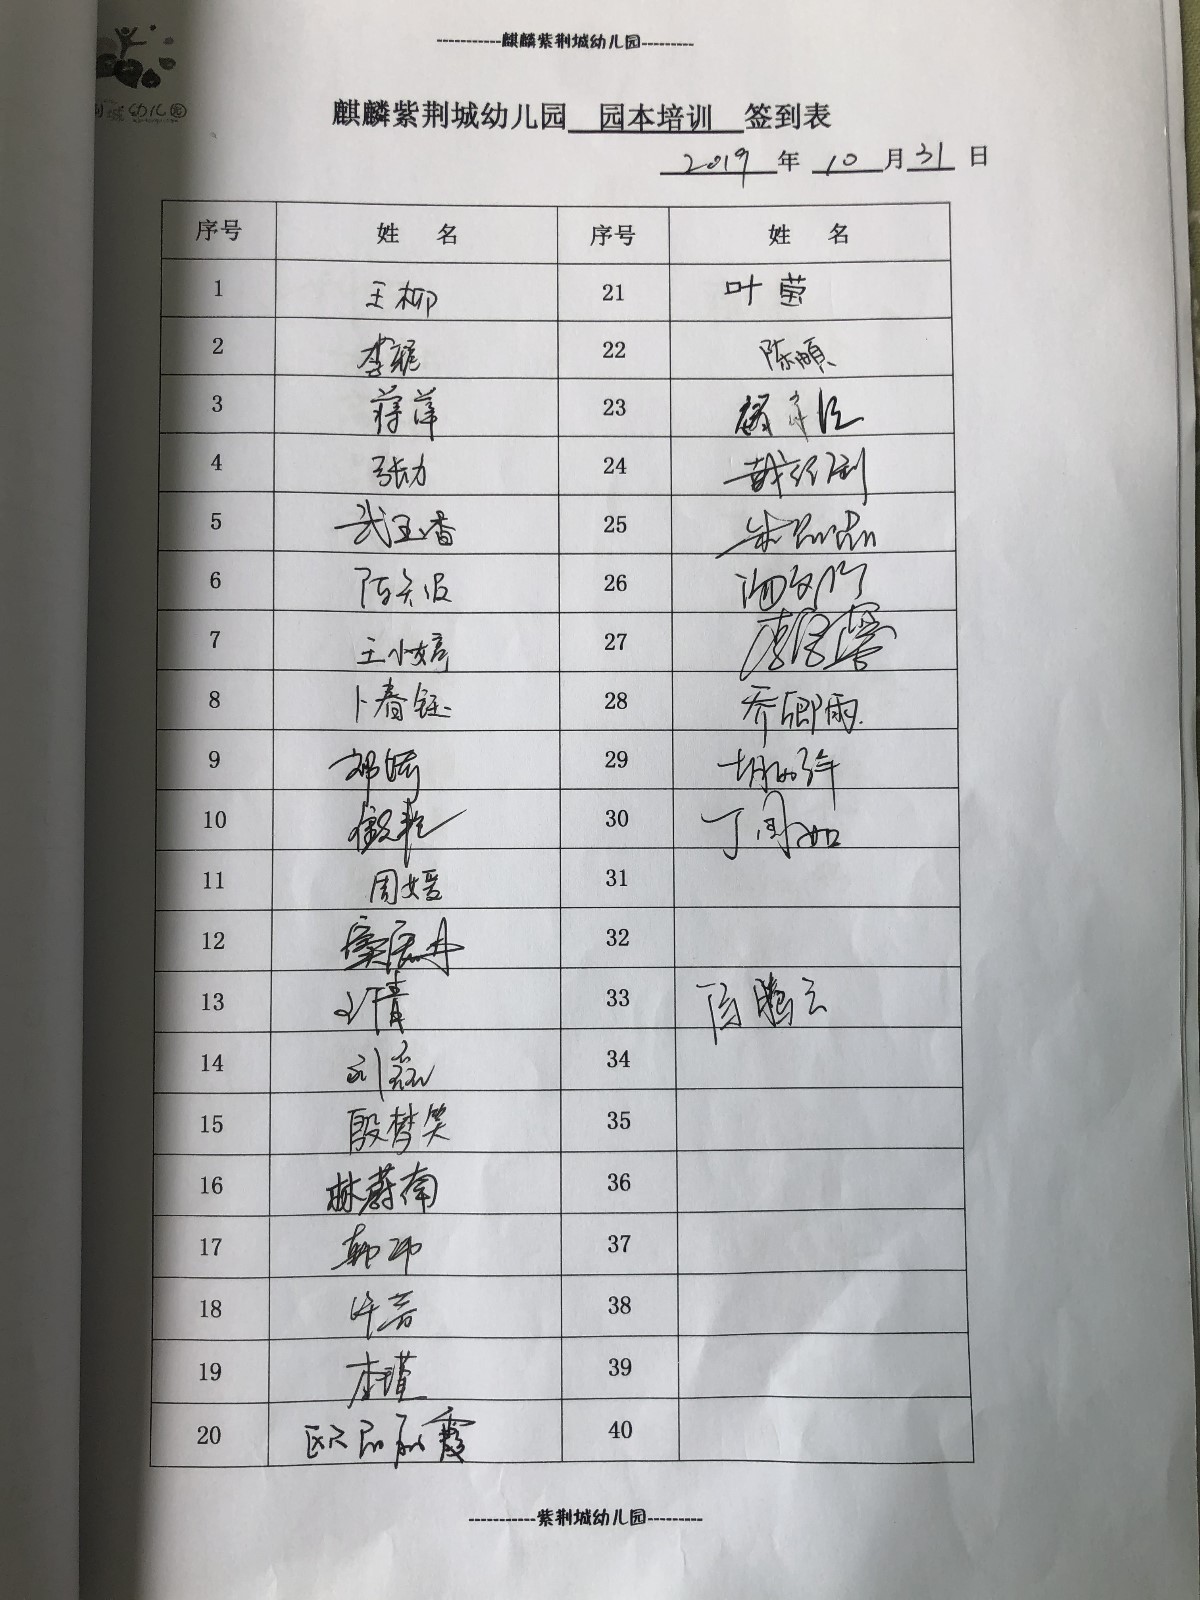 -----------麒麟紫荆城幼儿园---------
荆城幼儿园
麒麟紫荆城幼儿园 园本培训 签到表
2019 年 10 月 31 日
序号 姓 名 序号 姓 名
1 王柳 21 叶萤
2 李 22 陈
3 蒋萍 23
4 张力 24 戴
5 武玉香 25 朱
6 陈 26
7 王小婷 27 李
8 卜春钰 28 乔卿雨
9 邓 29 胡
10 30 丁周如
11 周媛 31
12 窦 32
13 王倩 33 陈腾云
14 刘磊 34
15 殷梦笑 35
16 林蔚南 36
17 韩 37
18 许音 38
19 李瑾 39
20 欧阳 霞 40
-----------紫荆城幼儿园---------